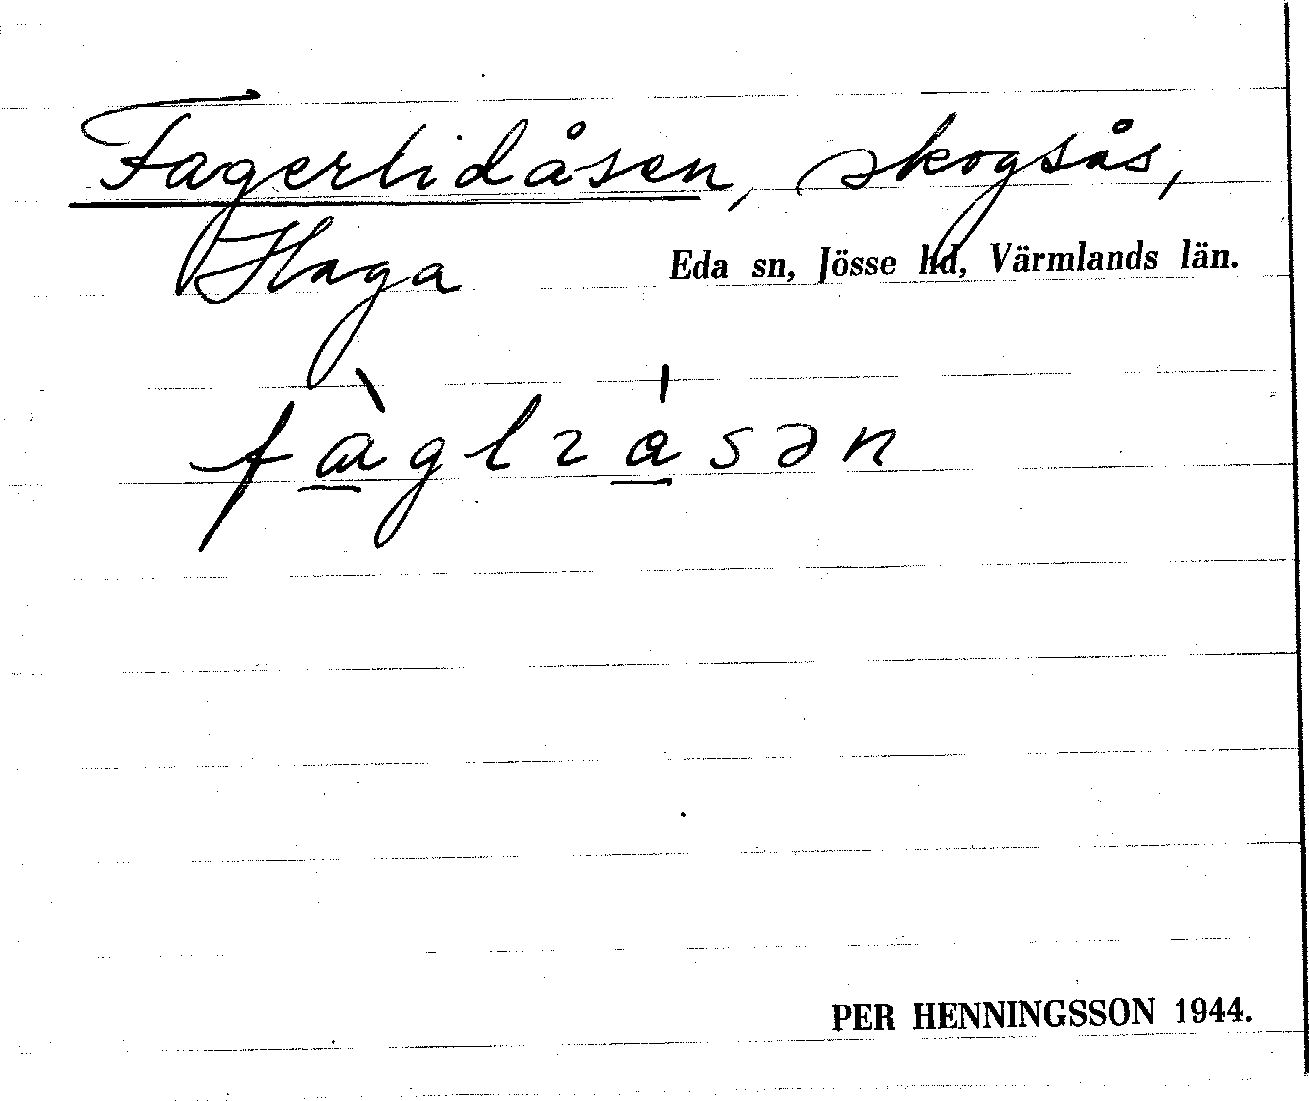 Fagerlidåsen, skogsås,
Haga Eda sn, Jösse hd, Värmlands län.
fàglɩåsən
PER HENNINGSSON 1944.